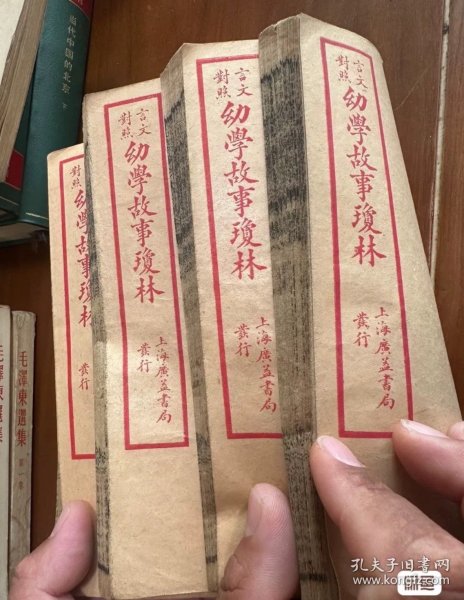 當代中国的北京 下
言文
對照
幼學故事瓊林
上海廣益書局
發行
言文
對照
幼學故事瓊林
上海廣益書局
發行
言文
對照
幼學故事瓊林
上海廣益書局
發行
對照
幼學故事瓊林
發行
毛澤東選集
第一卷
毛澤東選集
孔夫子旧书网
www.kongfz.com